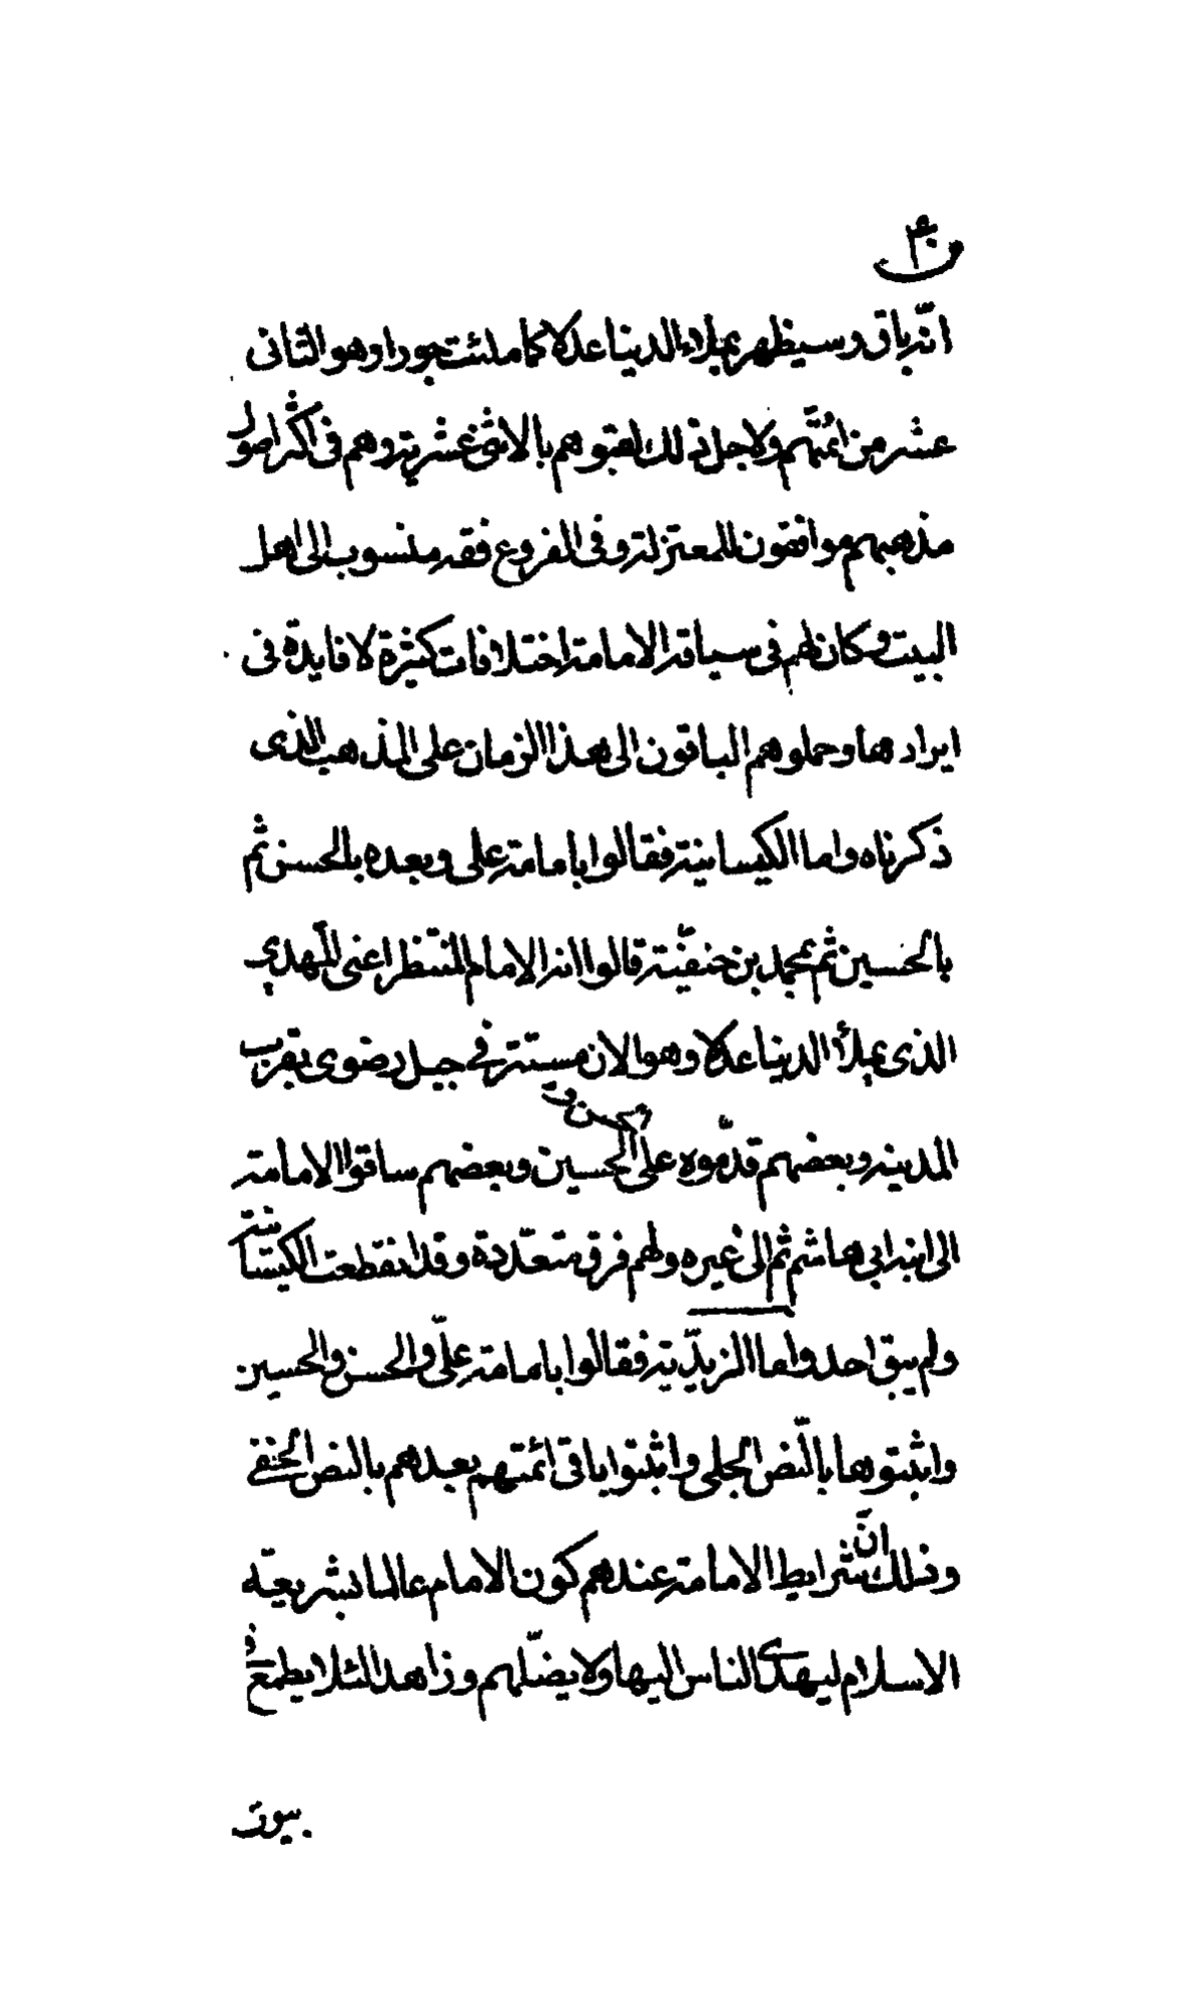 انّه باق وسيظهر يملاء الدينا عدلا كما ملئت جورا وهو الثانى
عشر من ائمّتهم ولاجل ذلك لقبوهم بالاثنى عشرية وهم فى اكثر اصول
مذهبهم موافقون للمعتزلة وفى الفروع فقه منسوب الى اهل
البيت وكان لهم فى سياقة الامامة اختلافات كثيرة لا فايدة فى
ايرادها وحملوهم الباقون الى هذا الزمان على المذهب الذى
ذكرناه واما الكيسانية فقالوا بامامة على وبعده بالحسن ثم
بالحسين ثم بمحمد بن حنفيّة قالوا انه الامام المنتظر اعنى المهدي
الذى يملأ الدينا عدلا وهو الان مستتر في جبل رضوى بقرب
المدينه وبعضهم قدّموه على الحسن والحسين وبعضهم ساقوا الامامة
الى ابنه ابي هاشم ثم الى غيره ولهم فرق متعدّدة وقد انقطعت الكيسانية
ولم يبق احد واما الزيديّة فقالوا بامامة علىّ والحسن والحسين
واثبتوها بالنّص الجلى واثبتوا باقى ائمتهم بعدهم بالنص الخفى
وذلك انّ شرايط الامامة عندهم كون الامام عالما بشريعة
الاسلام ليهدى الناس اليها ولا يضلّهم وزاهدا لئلا يطمع فى
بيوت